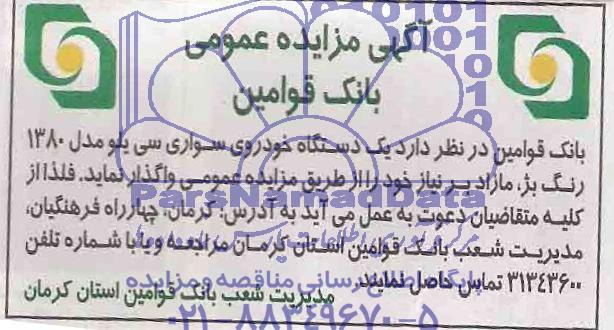 آگهی مزایده عمومی
بانک قوامین
بانک قوامین در نظر دارد یک دستگاه خودروی سواری سی یلو مدل ۱۳۸۰
رنگ بژ، مازاد بر نیاز خود را از طریق مزایده عمومی واگذار نماید. فلذا از
کلیه متقاضیان دعوت به عمل می آید به آدرس: کرمان، چهارراه فرهنگیان،
مدیریت شعب بانک قوامین استان کرمان مراجعه و یا با شماره تلفن
۳۱۳۴۳۶۰۰ تماس حاصل نمایند.
مدیریت شعب بانک قوامین استان کرمان
ParsNamadData
پایگاه اطلاع رسانی مناقصه و مزایده
۰۲۱-۸۸۳۴۹۶۷۰-۵